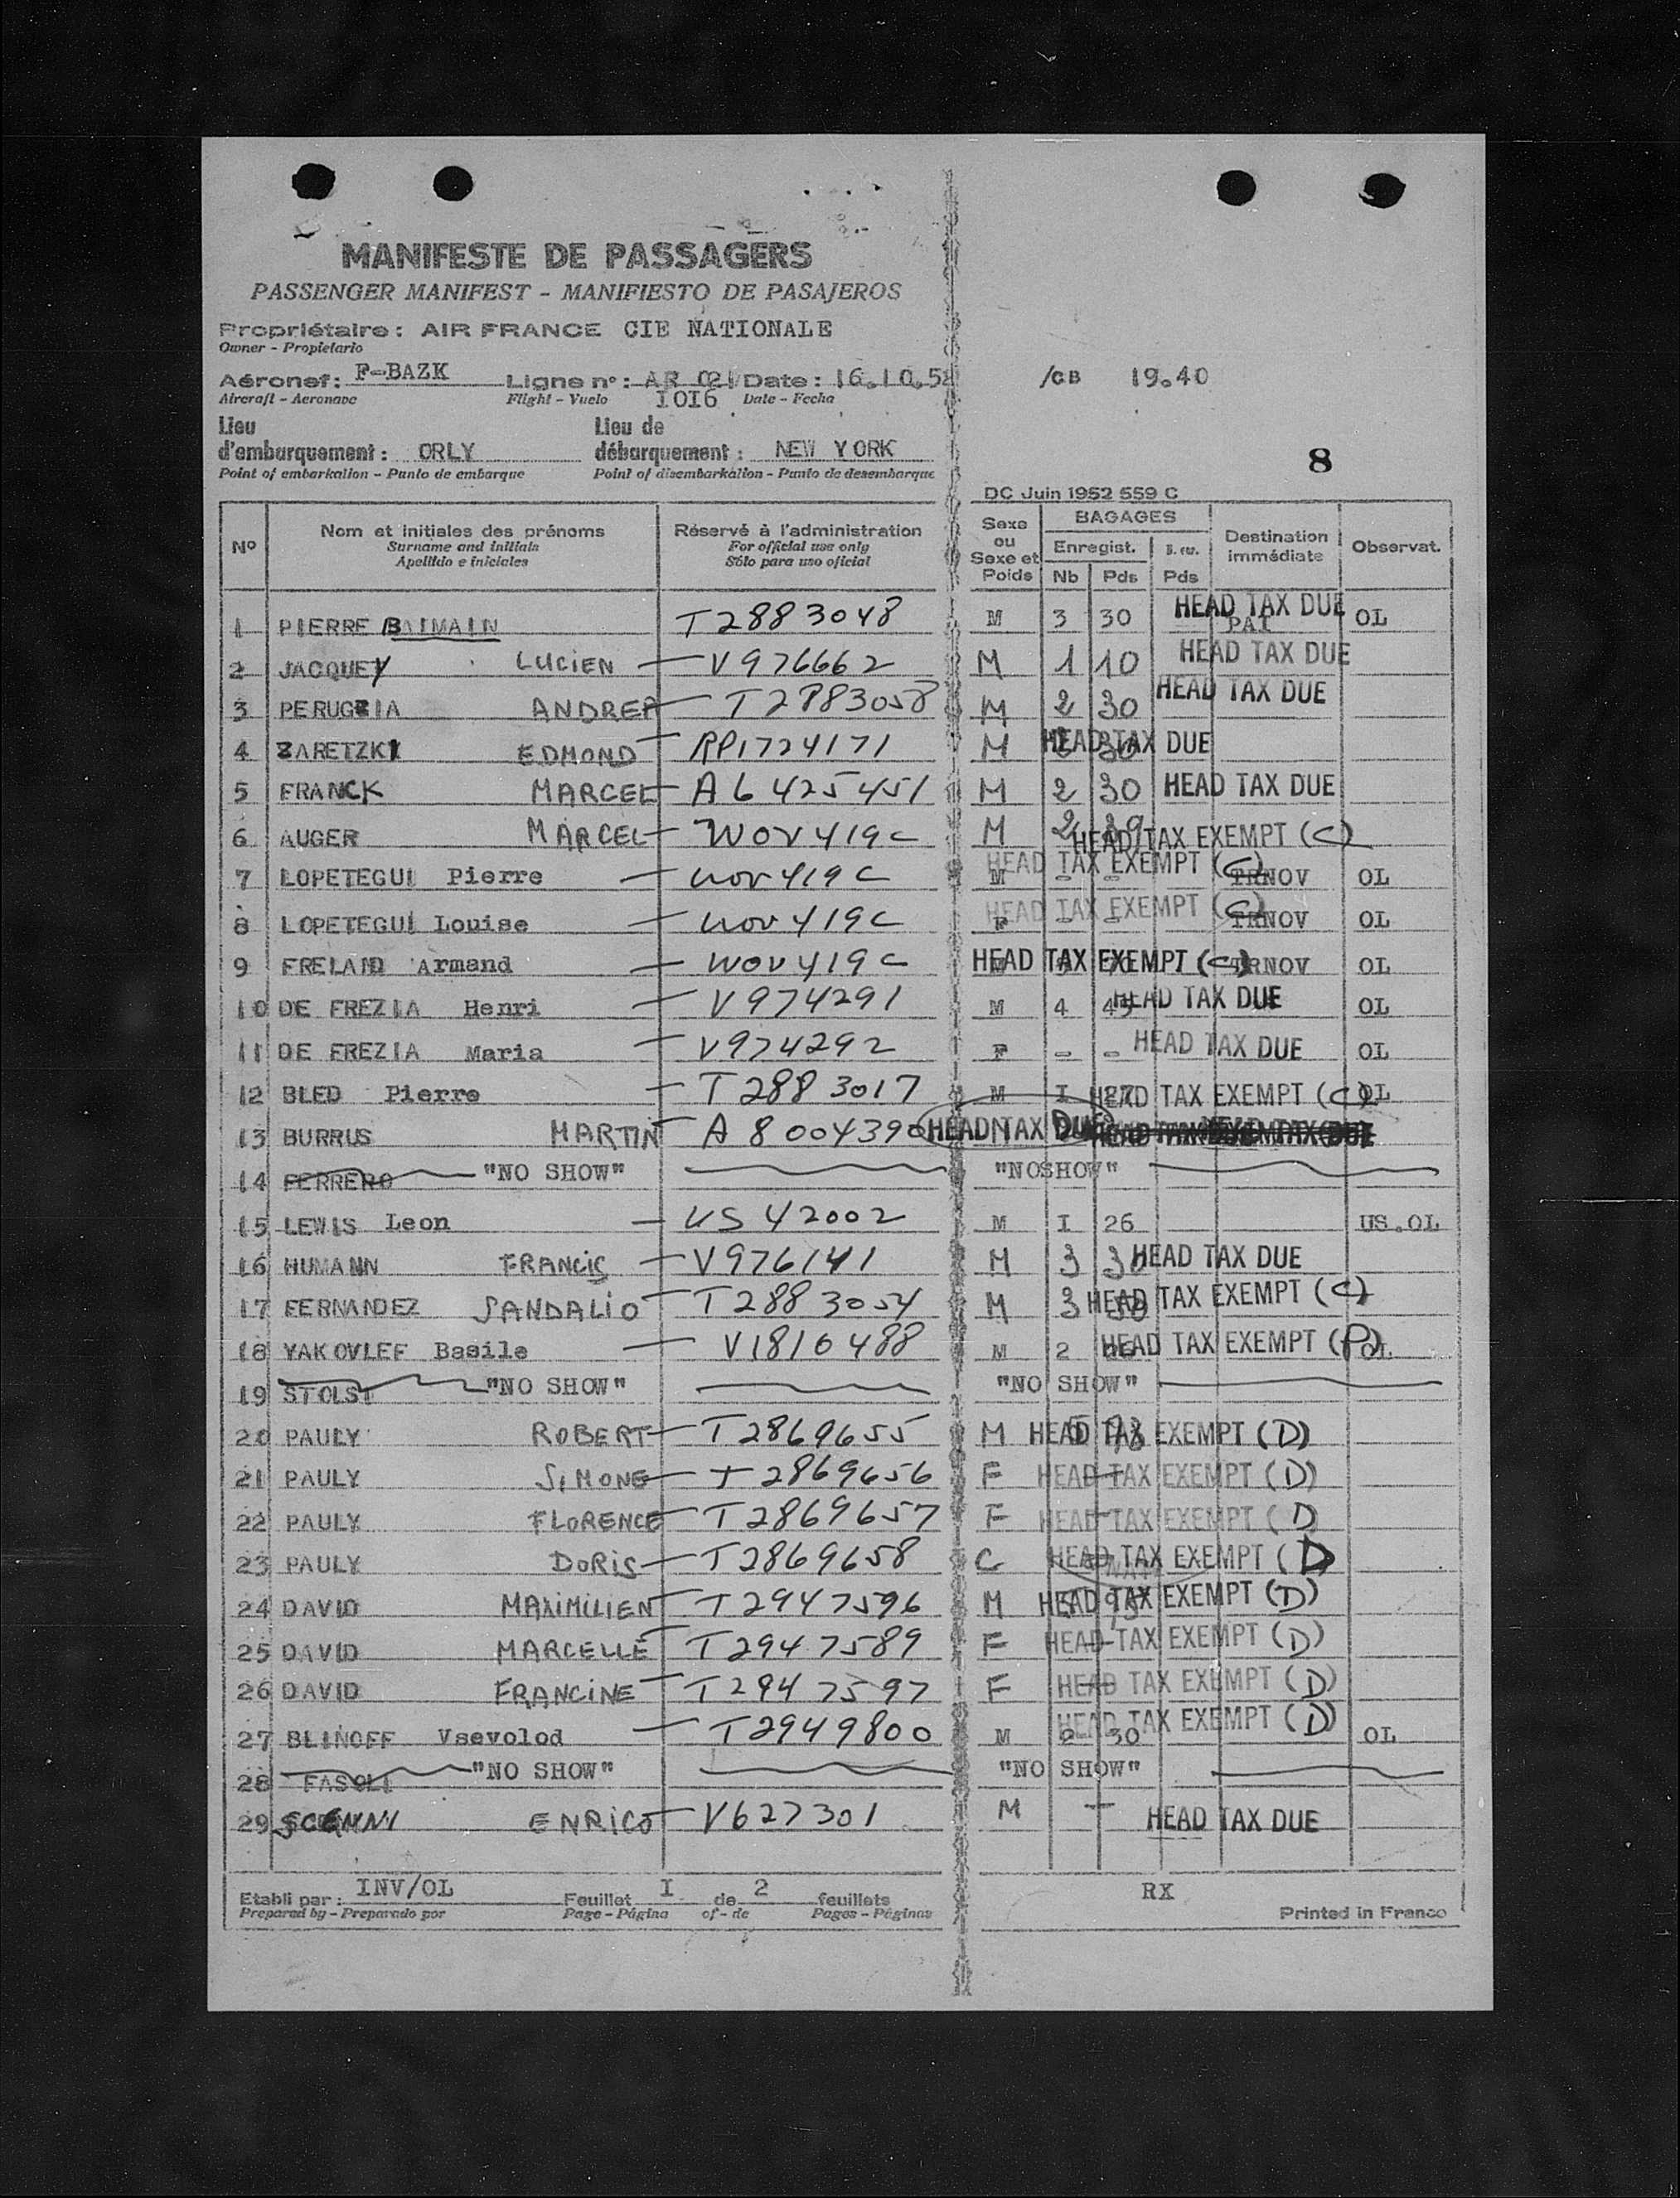 MANIFESTE DE PASSAGERS
PASSENGER MANIFEST - MANIFIESTO DE PASAJEROS
Propriétaire : AIR FRANCE CIE NATIONALE
Owner - Propietario
Aéronef : F-BAZK Ligne n° : AR 021 Date : 16.10.52 /CB 19.40
Aircraft - Aeronave Flight - Vuelo 1016 Date - Fecha
Lieu d'embarquement : ORLY Lieu de débarquement : NEW YORK
Point of embarkation - Punto de embarque Point of disembarkation - Punto de desembarque
8
DC Juin 1952 559 C
N° Nom et initiales des prénoms Réservé à l'administration Sexe ou Sexe et Poids BAGAGES Destination immédiate Observat.
Surname and initials For official use only Enregist.
Apellido e iniciales Sólo para uso oficial Nb Pds Pds
1 PIERRE BAIMAIN T2883048 M 3 30 HEAD TAX DUE PAI OL
2 JACQUEY LUCIEN V976662 M 1 10 HEAD TAX DUE
3 PERUGIA ANDREA T2883058 M 2 30 HEAD TAX DUE
4 ZARETZKY EDMOND RP1724171 M HEAD TAX DUE
5 FRANCK MARCEL A6425451 M 2 30 HEAD TAX DUE
6 AUGER MARCEL WOV419C M 2 HEAD TAX EXEMPT (C)
7 LOPETEGUI Pierre WOV419C M - - HEAD TAX EXEMPT (C) TRNOV OL
8 LOPETEGUI Louise WOV419C F - - HEAD TAX EXEMPT (C) TRNOV OL
9 FRELAND Armand WOV419C HEAD TAX EXEMPT (C) TRNOV OL
10 DE FREZIA Henri V974291 M 4 45 HEAD TAX DUE OL
11 DE FREZIA Maria V974292 F - - HEAD TAX DUE OL
12 BLED Pierre T2883017 M I 27 HEAD TAX EXEMPT (C) OL
13 BURRUS MARTIN A8004390 HEAD TAX DUE
14 FERRERO "NO SHOW" "NO SHOW"
15 LEWIS Leon US42002 M I 26 US.OL
16 HUMANN FRANCIS V976141 M 3 30 HEAD TAX DUE
17 FERNANDEZ SANDALIO T2883054 M 3 30 HEAD TAX EXEMPT (C)
18 YAKOVLEF Basile V1816488 M 2 HEAD TAX EXEMPT (P) OL
19 STOLSI "NO SHOW" "NO SHOW"
20 PAULY ROBERT T2869655 M HEAD TAX EXEMPT (D)
21 PAULY SIMONE T2869656 F HEAD TAX EXEMPT (D)
22 PAULY FLORENCE T2869657 F HEAD TAX EXEMPT (D
23 PAULY DORIS T2869658 C HEAD TAX EXEMPT (D
24 DAVID MAXIMILIEN T2947596 M HEAD TAX EXEMPT (D)
25 DAVID MARCELLE T2947589 F HEAD TAX EXEMPT (D)
26 DAVID FRANCINE T2947597 F HEAD TAX EXEMPT (D)
27 BLINOFF Vsevolod T2949800 M 2 30 HEAD TAX EXEMPT (D) OL
28 FASOLI "NO SHOW" "NO SHOW"
29 SCENNI ENRICO V627301 M - HEAD TAX DUE
Etabli par : INV/OL Feuillet I de 2 feuillets RX
Prepared by - Preparado por Page - Página of - de Pages - Páginas Printed in France